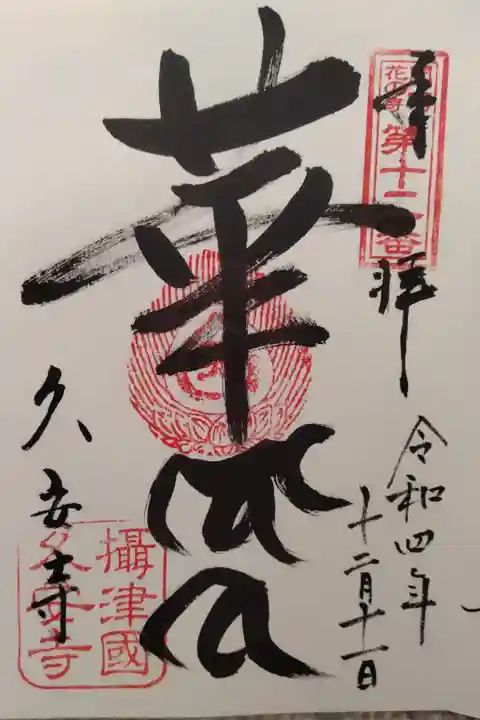 奉拝
花の寺
第十二番
令和四年
十二月十一日
華
久安寺
攝津國
久安寺